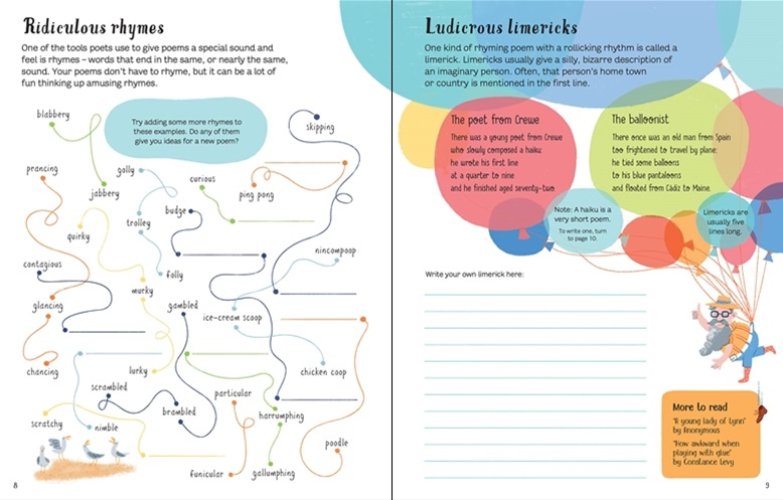 Ridiculous rhymes
One of the tools poets use to give poems a special sound and
feel is rhymes – words that end in the same, or nearly the same,
sound. Your poems don't have to rhyme, but it can be a lot of
fun thinking up amusing rhymes.
blabbery
Try adding some more rhymes to
these examples. Do any of them
give you ideas for a new poem?
skipping
prancing
golly
curious
ping pong
jabbery
budge
trolley
quirky
nincompoop
contagious
folly
murky
glancing
gambled
ice-cream scoop
chancing
lurky
chicken coop
scrambled
particular
scratchy
brambled
harrumphing
nimble
poodle
funicular
gallumphing
8
Ludicrous limericks
One kind of rhyming poem with a rollicking rhythm is called a
limerick. Limericks usually give a silly, bizarre description of
an imaginary person. Often, that person's home town
or country is mentioned in the first line.
The poet from Crewe
There was a young poet from Crewe
who slowly composed a haiku:
he wrote his first line
at a quarter to nine
and he finished aged seventy-two.
The balloonist
There once was an old man from Spain
too frightened to travel by plane;
he tied some balloons
to his blue pantaloons
and floated from Cádiz to Maine.
Note: A haiku is a
very short poem.
To write one, turn
to page 10.
Limericks are
usually five
lines long.
Write your own limerick here:
More to read
"A young lady of Lynn"
by Anonymous
"How awkward when
playing with glue"
by Constance Levy
9